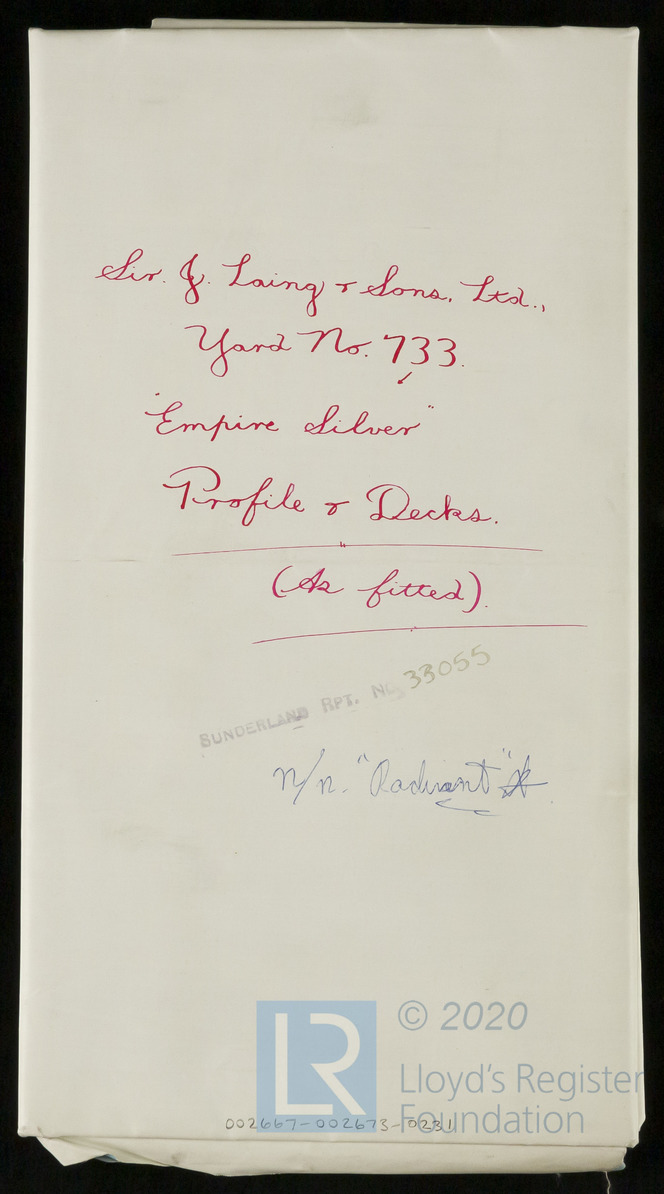 Sir. J. Laing & Sons, Ltd.,
Yard No. 733.
"Empire Silver"
Profile & Decks.
(As fitted).
SUNDERLAND RPT. No 33055
n/n. "Radiant"
© 2020
LR
Lloyd's Register
Foundation
002667-002673-0231